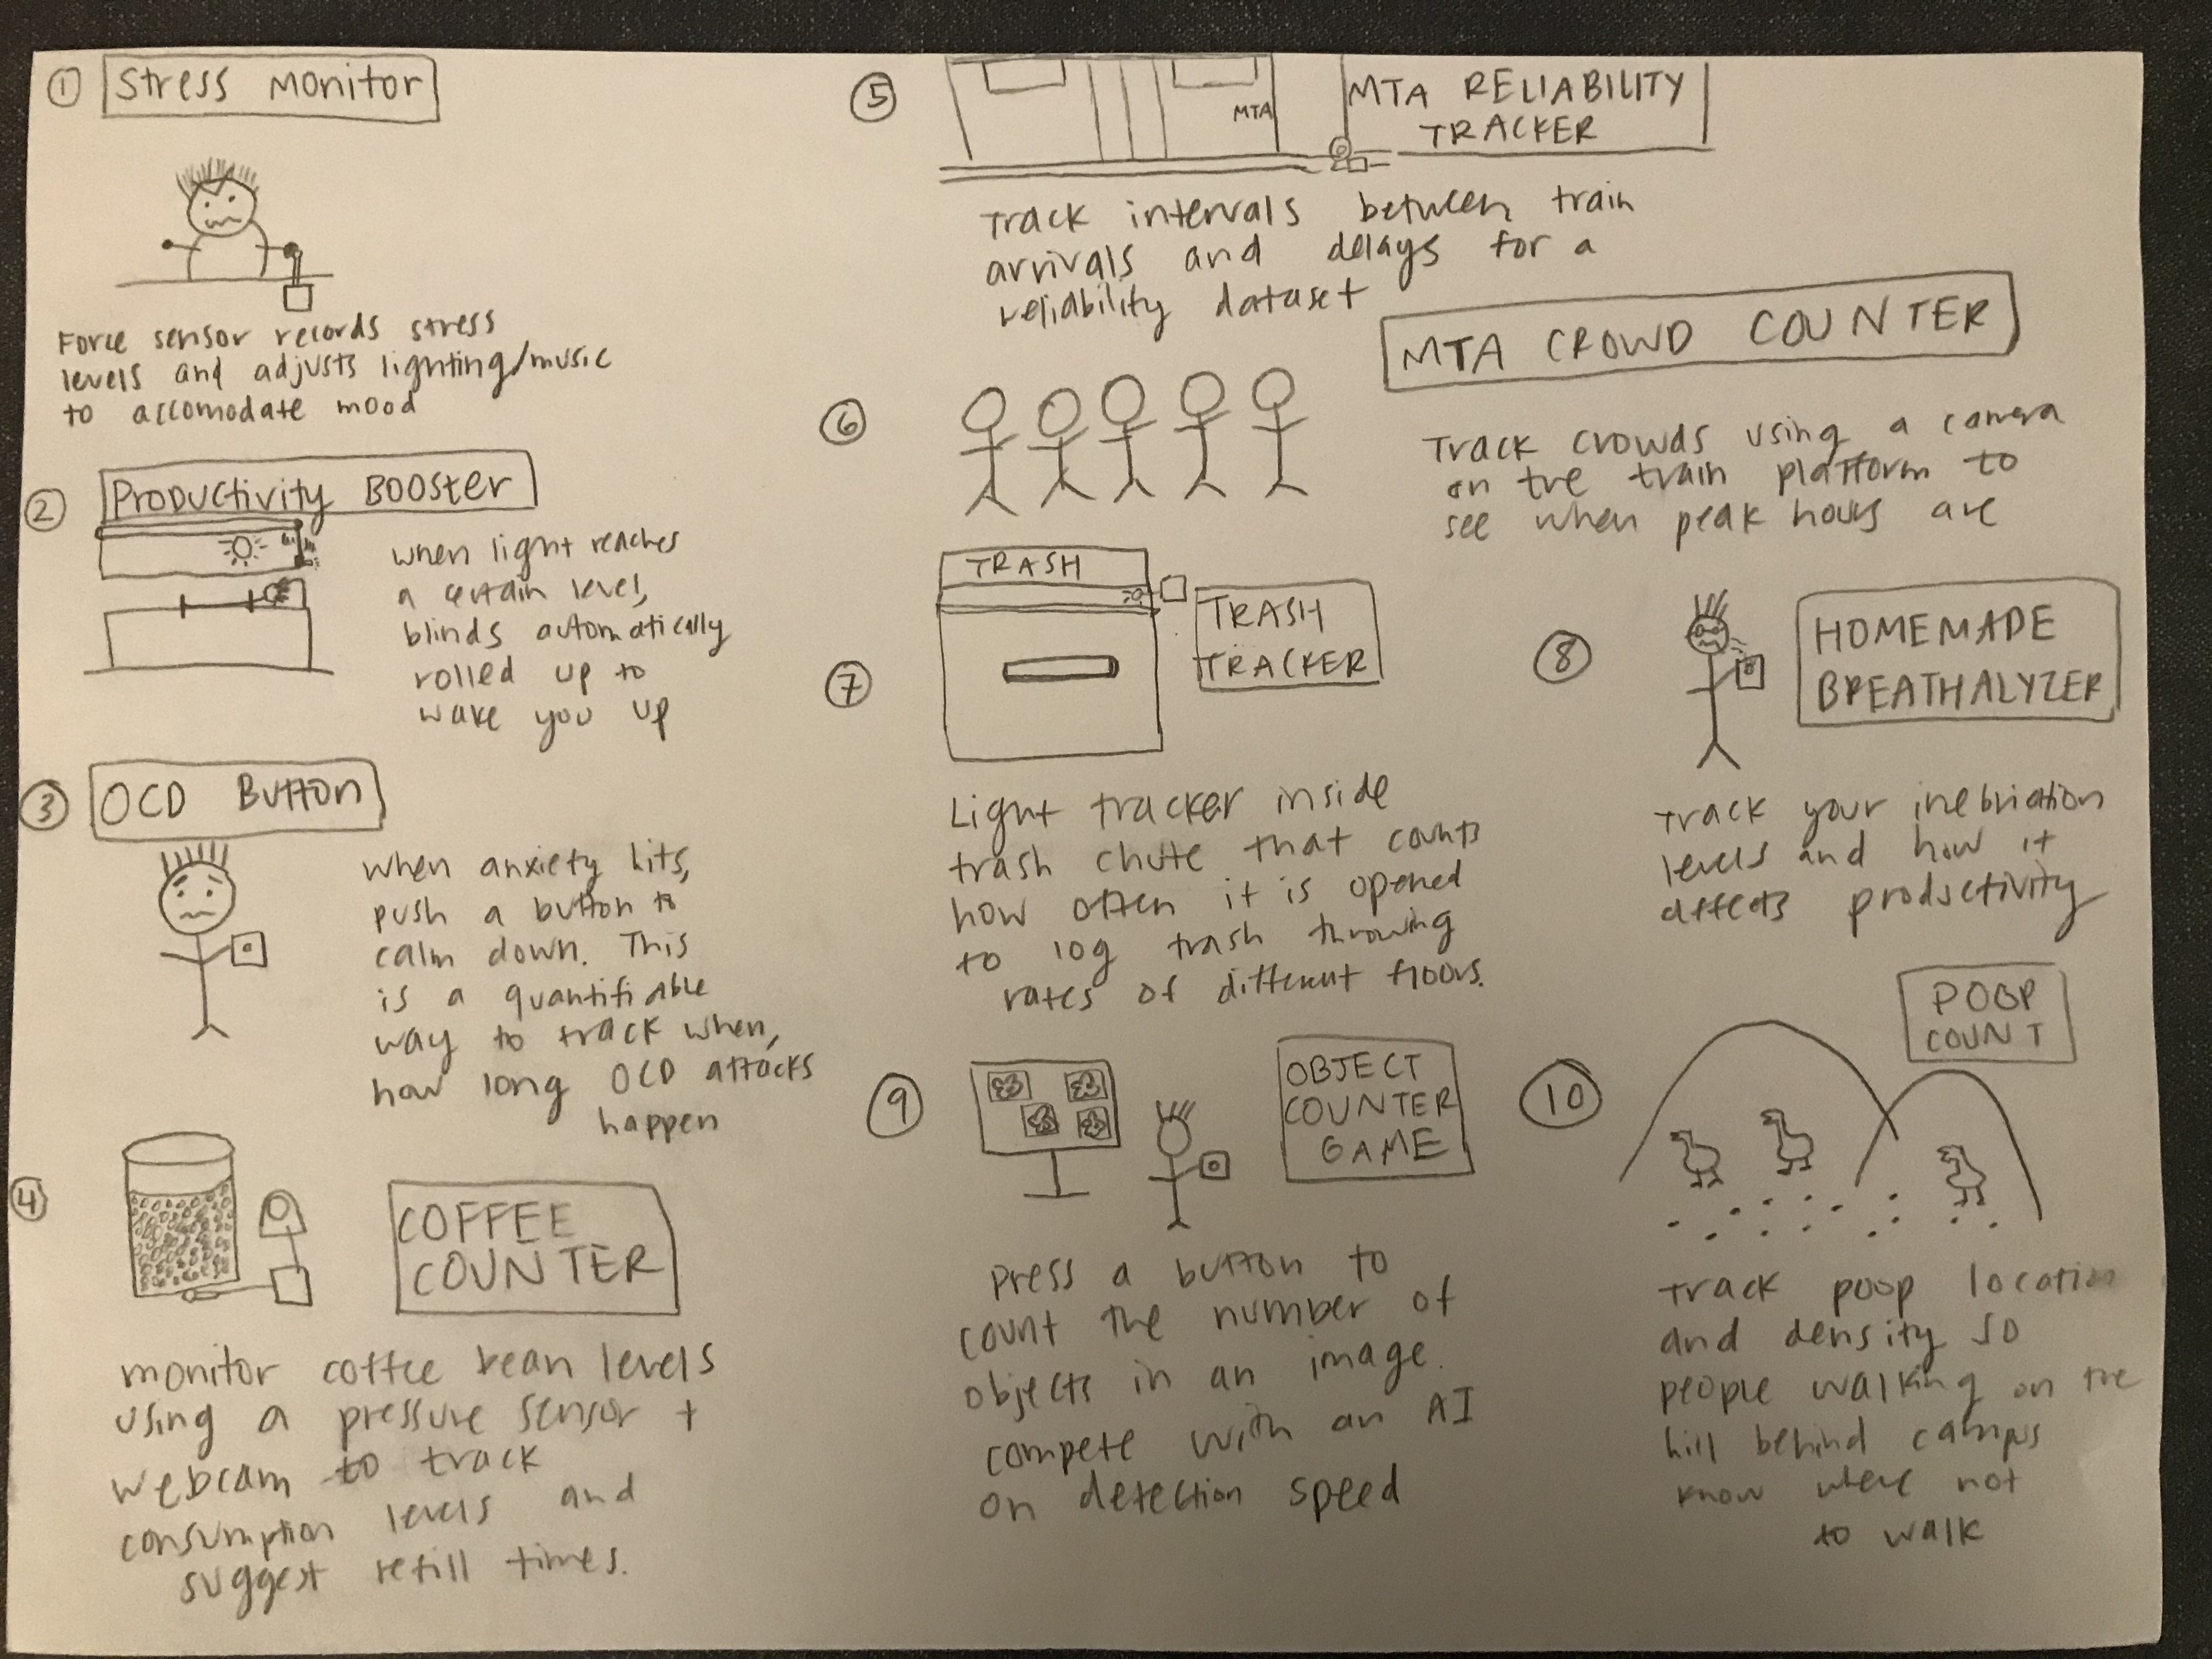 ① Stress Monitor
Force sensor records stress
levels and adjusts lighting/music
to accomodate mood
② Productivity BOOSTER
when light reaches
a certain level,
blinds automatically
rolled up to
wake you up
③ OCD BUTTON
when anxiety hits,
push a button to
calm down. This
is a quantifiable
way to track when,
how long OCD attacks
happen
④ COFFEE
COUNTER
monitor coffee bean levels
using a pressure sensor +
webcam to track
consumption levels and
suggest refill times.
⑤ MTA
MTA RELIABILITY
TRACKER
track intervals between train
arrivals and delays for a
reliability dataset
⑥ MTA CROWD COUNTER
Track crowds using a camera
on the train platform to
see when peak hours are
⑦ TRASH
TRASH
TRACKER
Light tracker inside
trash chute that counts
how often it is opened
to log trash throwing
rates of different floors.
⑧ HOMEMADE
BREATHALYZER
track your inebriation
levels and how it
affects productivity
⑨ OBJECT
COUNTER
GAME
press a button to
count the number of
objects in an image.
compete with an AI
on detection speed
⑩ POOP
COUNT
track poop location
and density so
people walking on the
hill behind campus
know where not
to walk